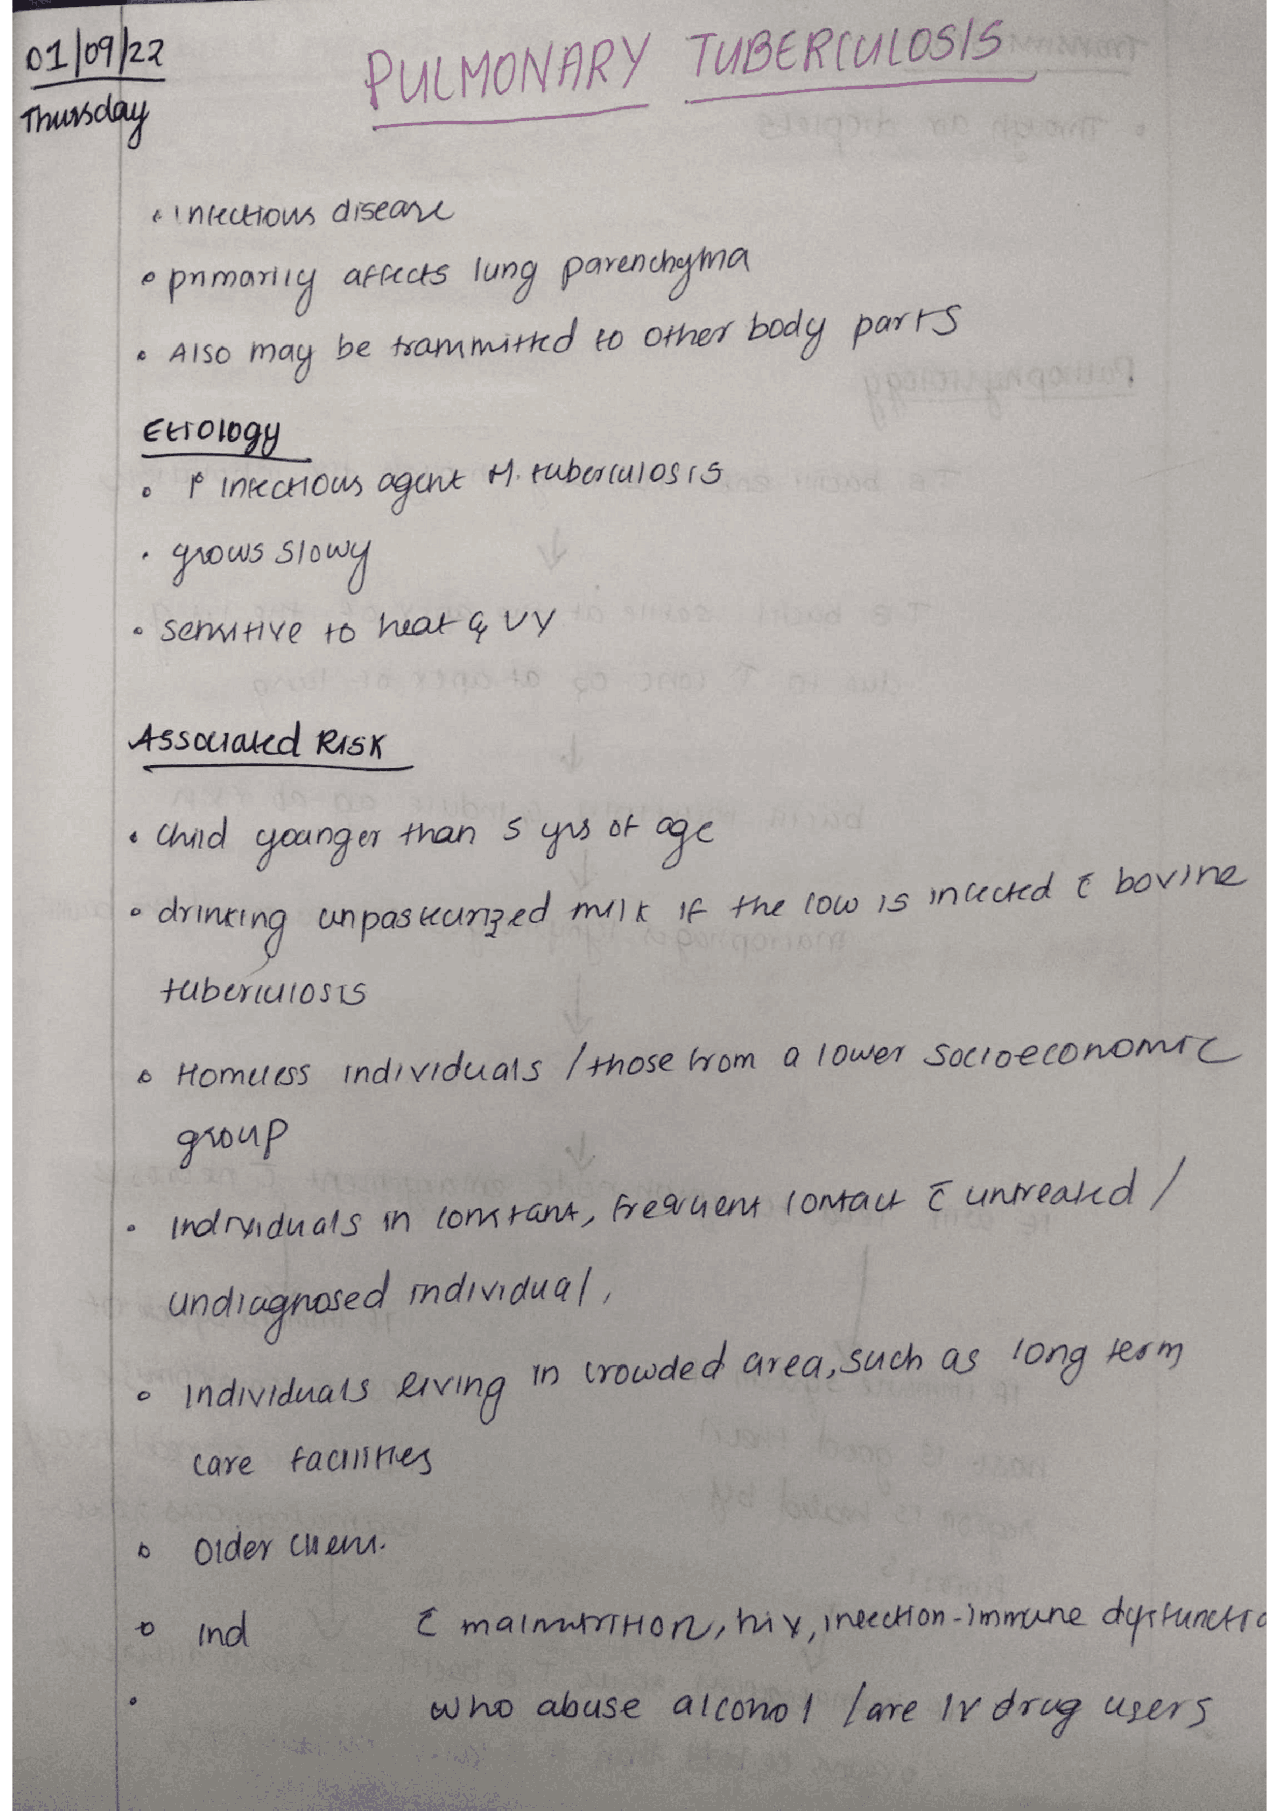 01/09/22
Thursday
PULMONARY TUBERCULOSIS
• Infectious disease
• primarily affects lung parenchyma
• Also may be transmitted to other body parts
Etiology
• 1° infectious agent M. tuberculosis
• grows slowy
• sensitive to heat & UV
Associated Risk
• child younger than 5 yrs of age
• drinking unpasteurized milk if the cow is infected c̄ bovine
tuberculosis
• Homeless individuals / those from a lower socioeconomic
group
• Individuals in constant, frequent contact c̄ untreated /
undiagnosed individual,
• Individuals living in crowded area, such as long term
care facilities
• Older client.
• Ind c̄ malnutrition, hiv, infection - immune dysfunctio
• who abuse alcohol / are IV drug users